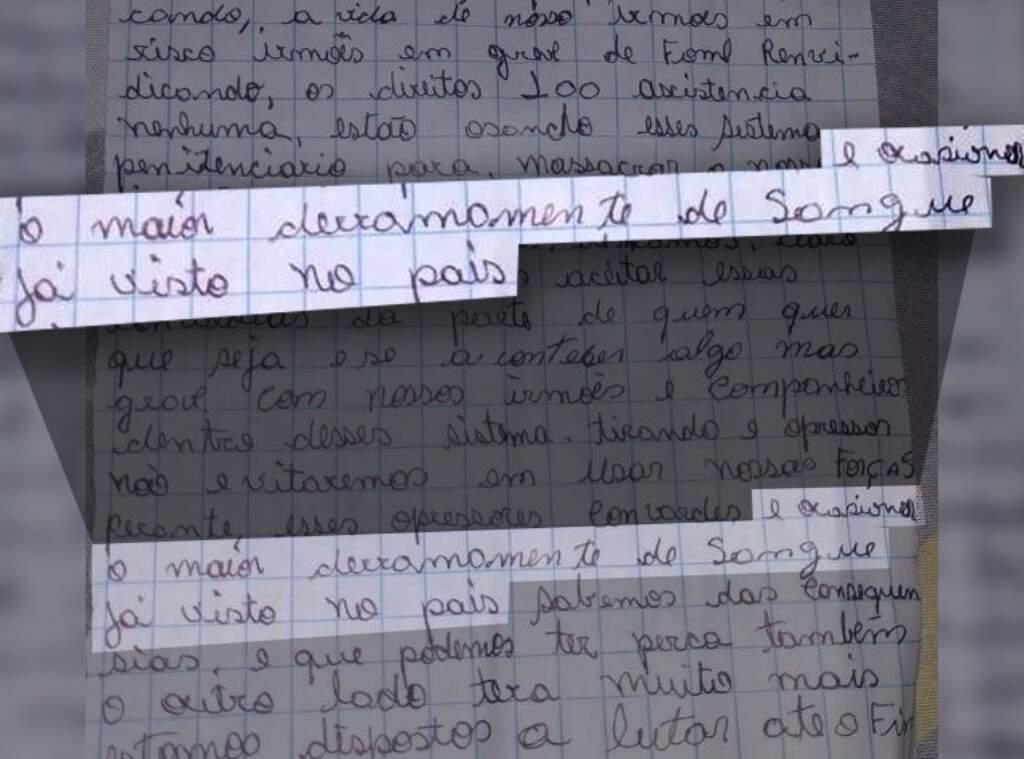 cando, a vida de nosso irmãos em
risco irmões em greve de Fome Renvi-
dicando, os direitos 100 asistencia
nenhuma, estão osando esses sistema
penitenciario para, massacrar o
e ocasiones
o maiór derramomente de Songue
já visto no pais
aceitar essas
da parte de quem quer
que seja e se acontecer algo mas
grave com nossos irmões e Companheiros
dentro desses sistema. tirando e opressor
não evitaremos em usar nossas FORÇAS
perante, esses opressores Convardes e ocasiones
o maiór derramomente de Songue
já visto no pais sabemos das Consequen
sias, e que podemos ter perca também
o outro lado tera muito mais
estamos dispostos a lutar ate o Fim